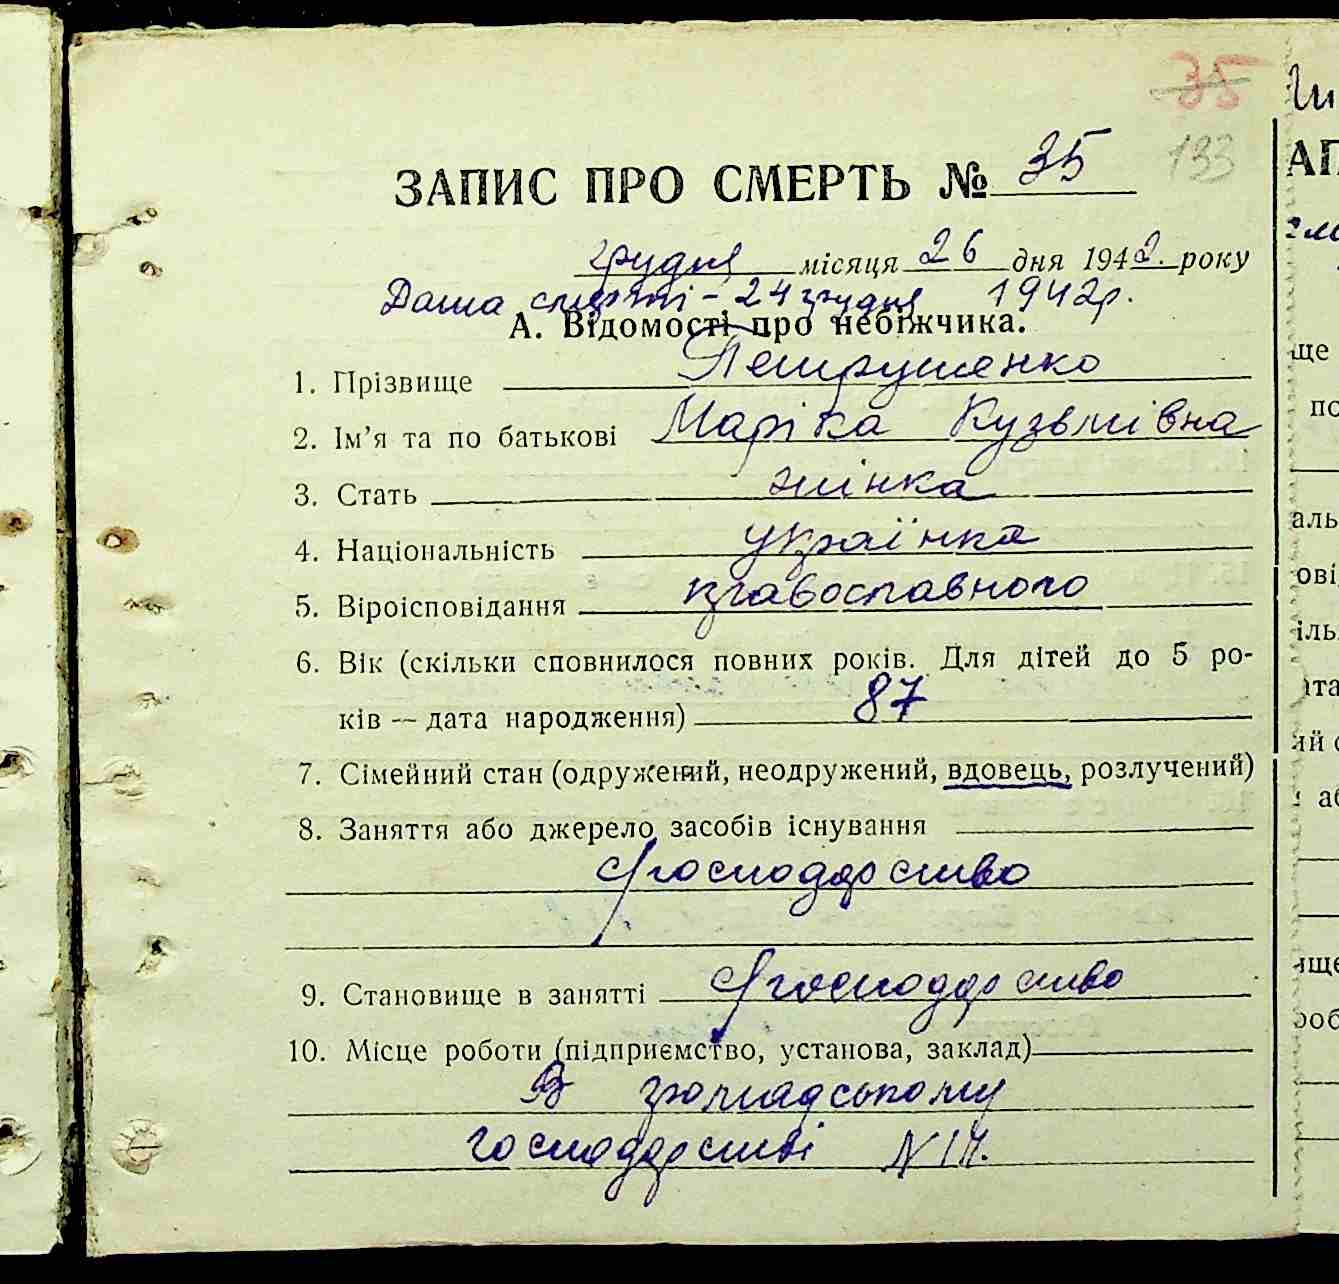 35
133
ЗАПИС ПРО СМЕРТЬ № 35
грудня місяця 26 дня 1942. року
Дата смерті - 24 грудня 1942р.
А. Відомості про небіжчика.
1. Прізвище Петрушенко
2. Ім’я та по батькові Маріка Кузьмівна
3. Стать жінка
4. Національність українка
5. Віроісповідання православного
6. Вік (скільки сповнилося повних років. Для дітей до 5 ро-
ків — дата народження) 87
7. Сімейний стан (одружений, неодружений, вдовець, розлучений)
8. Заняття або джерело засобів існування
Господарство
9. Становище в занятті Господарство
10. Місце роботи (підприємство, установа, заклад)
В громадському
господарстві N 14.